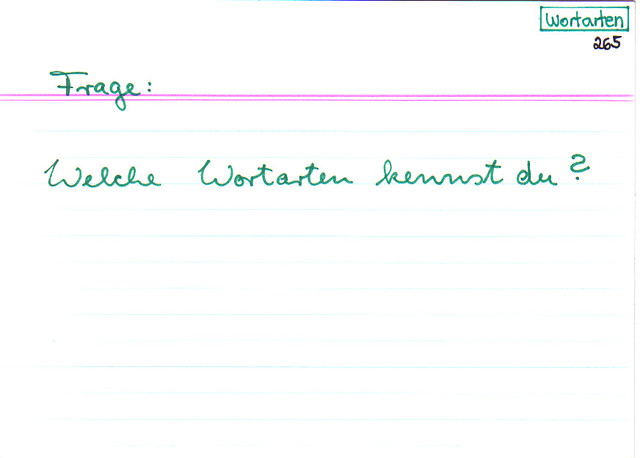 Wortarten
265
Frage:
Welche Wortarten kennst du?